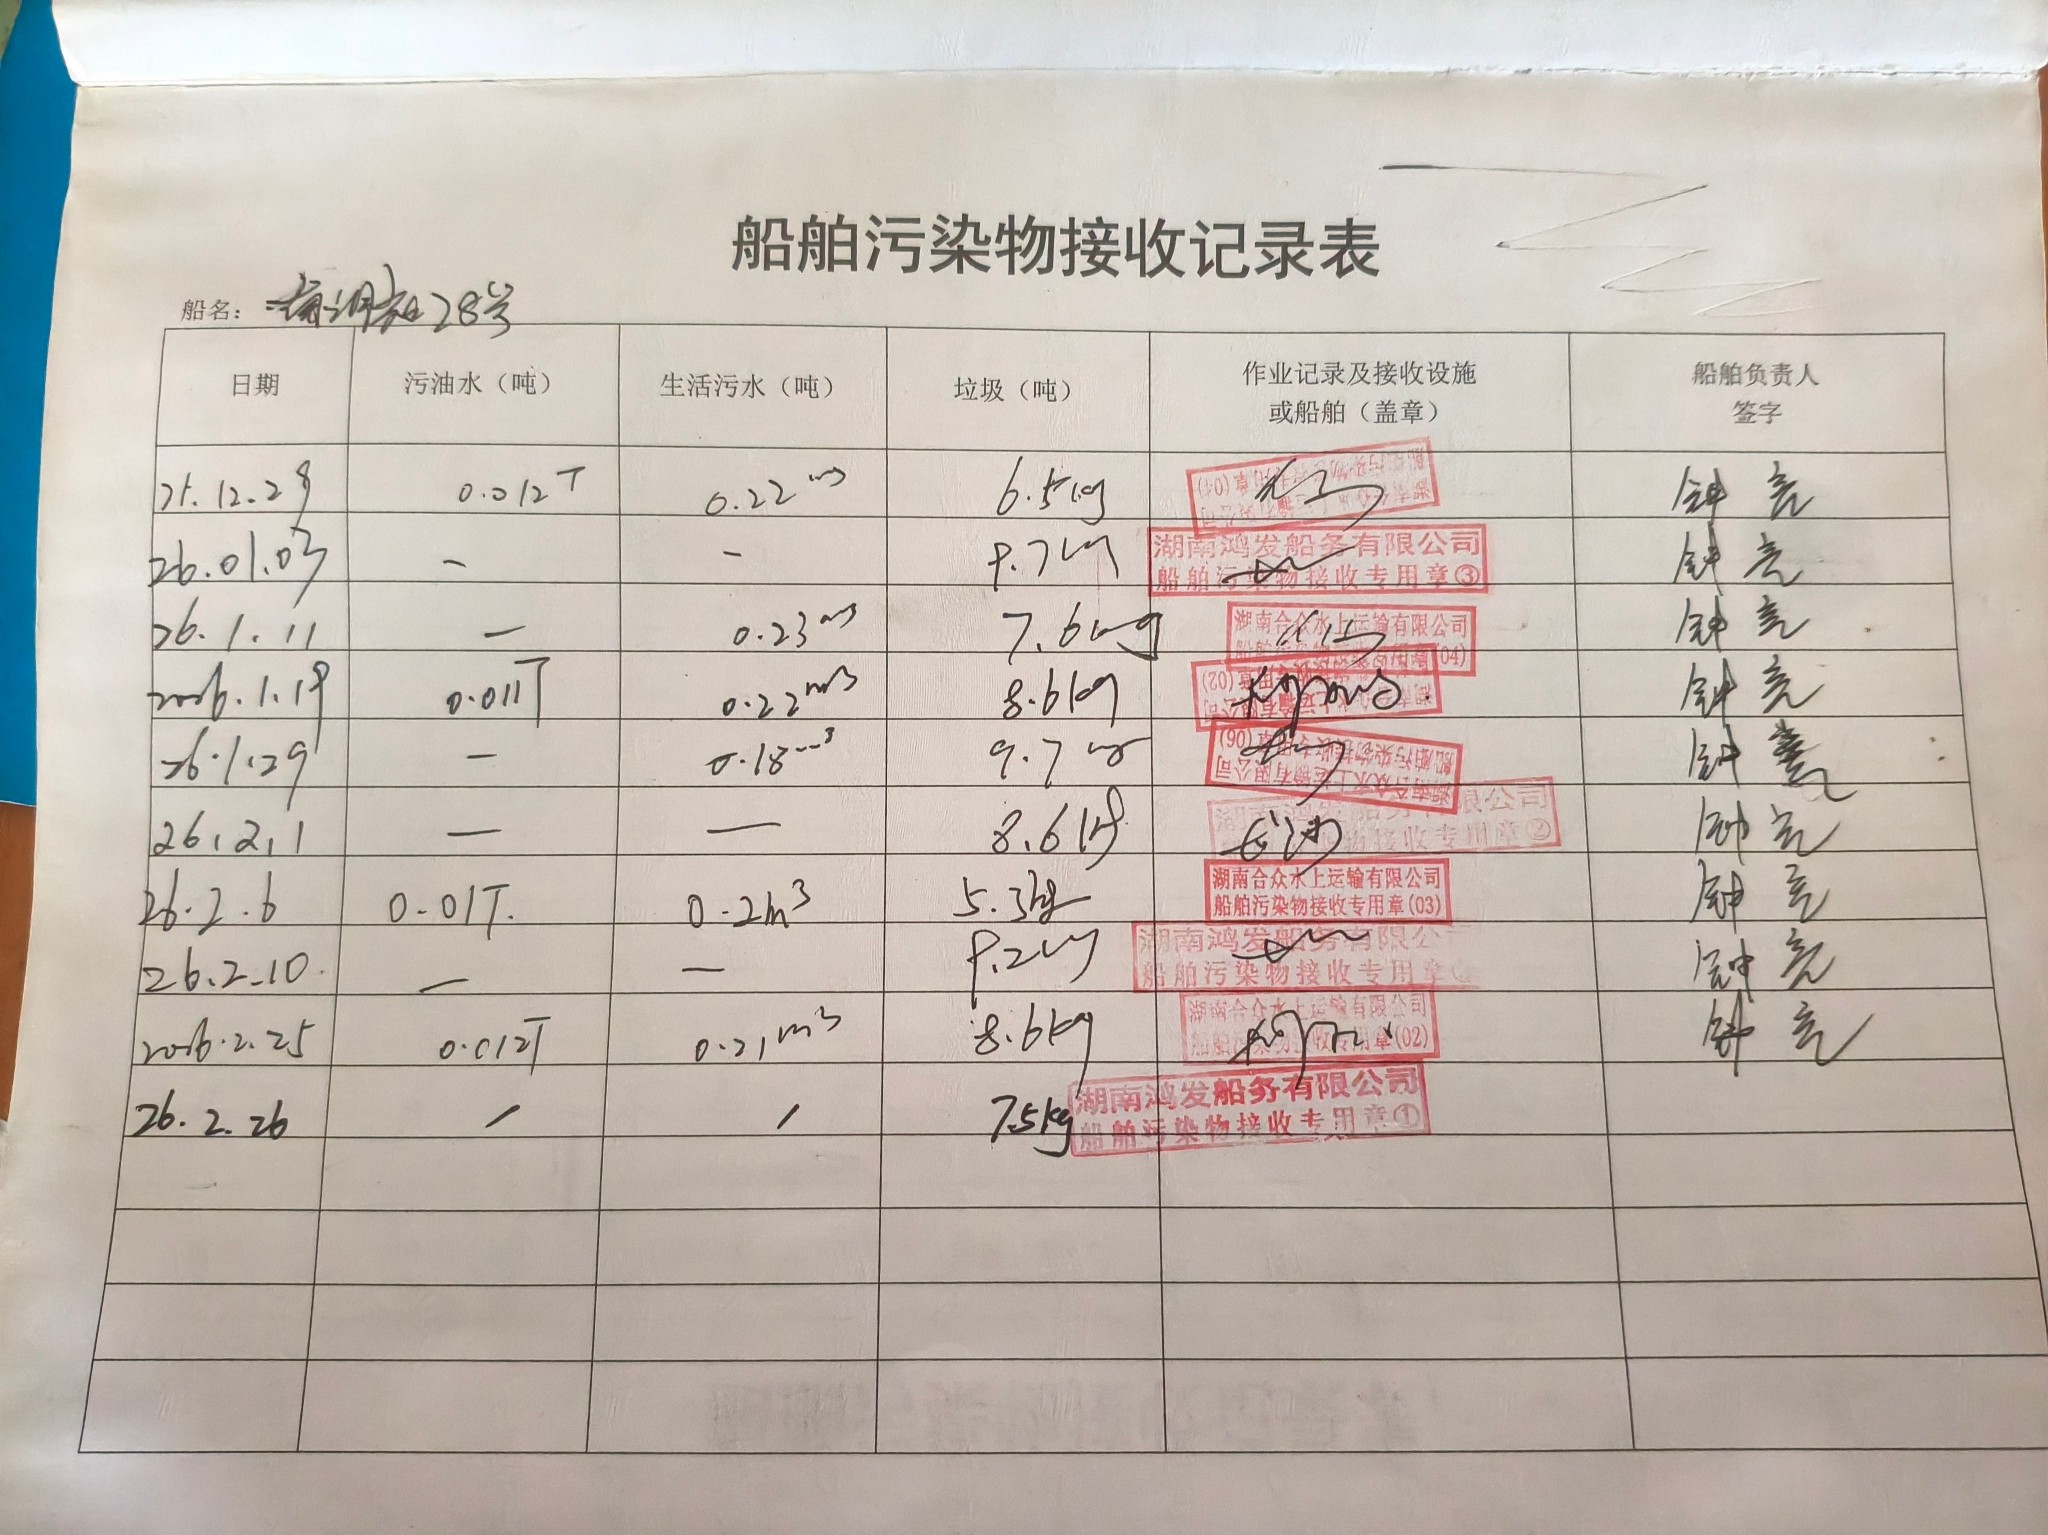 船舶污染物接收记录表
船名: 28号
日期 污油水（吨） 生活污水（吨） 垃圾（吨） 作业记录及接收设施或船舶（盖章） 船舶负责人签字
0.012T 0.22 m3 6.5kg 钟亮
26.01.03 — — 湖南鸿发船务有限公司 船舶污染物接收专用章③ 钟亮
26.1.11 — 0.23 m3 7.6kg 湖南合众水上运输有限公司 (04) 钟亮
2026.1.19 0.011T 0.22m3 8.6kg (02) 钟亮
26.1.29 — 0.18m3 9.7 湖南合众水上运输有限公司 船舶污染物接收专用章(06) 钟亮
26.2.1 — — 8.6kg 长沙 限公司 物接收专用章② 钟亮
26.2.6 0.01T. 0.2m3 5.3kg 湖南合众水上运输有限公司 船舶污染物接收专用章(03) 钟亮
26.2.10. — — 湖南鸿发船务有限公 船舶污染物接收专用章 钟亮
2026.2.25 0.012T 0.21m3 8.6kg 湖南合众水上运输有限公司 船舶污染物接收专用章(02) 钟亮
26.2.26 / / 7.5kg 湖南鸿发船务有限公司 船舶污染物接收专用章①